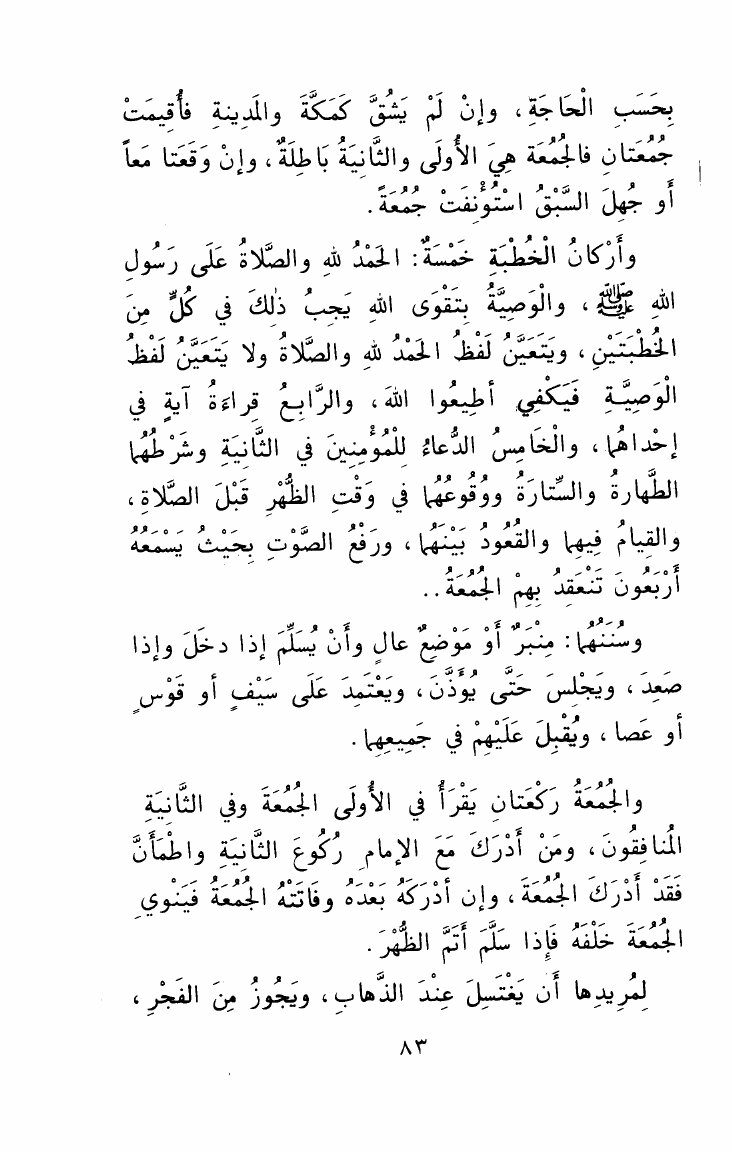 بِحَسَبِ الْحَاجَةِ، وإنْ لَمْ يَشُقَّ كَمَكَّةَ والمَدِينةِ فأُقِيمَتْ
جُمُعَتانِ فالجُمُعَة هِيَ الأُولَى والثَّانِيَةُ بَاطِلَةٌ، وإنْ وَقَعَتا مَعاً
أو جُهِلَ السَّبْقُ اسْتُؤْنِفَتْ جُمُعَةً.
وأَرْكانُ الْخُطْبَةِ خَمْسَةٌ: الحَمْدُ للهِ والصَّلاةُ عَلَى رَسُولِ
اللهِ ﷺ، والْوَصِيَّةُ بِتَقْوَى اللهِ يَجِبُ ذلِكَ في كُلٍّ مِنَ
الخُطْبَتَيْنِ، ويَتَعَيَّنُ لَفْظُ الحَمْدُ للهِ والصَّلاةُ ولا يَتَعَيَّنُ لَفْظُ
الْوَصِيَّةِ فَيَكْفِي أطِيعُوا اللهَ، والرَّابِعُ قِراءَةُ آيةٍ في
إحْداهُما، والْخَامِسُ الدُّعاءُ لِلْمُؤْمِنِينَ في الثَّانِيَةِ وشَرْطُهُما
الطَّهارةُ والسِّتارَةُ ووُقُوعُهُما في وَقْتِ الظُّهْرِ قَبْلَ الصَّلاةِ،
والقِيامُ فِيهِما والقُعُودُ بَيْنَهُما، ورَفْعُ الصَّوْتِ بِحَيْثُ يَسْمَعُهُ
أَرْبَعُونَ تَنْعَقِدُ بِهِمْ الجُمُعَةُ..
وسُنَنُهُما: مِنْبَرٌ أَوْ مَوْضِعٌ عالٍ وأَنْ يُسَلِّمَ إذا دخَلَ وإذا
صَعِدَ، ويَجْلِسَ حَتَّى يُؤَذَّنَ، ويَعْتَمِدَ عَلَى سَيْفٍ أو قَوْسٍ
أو عَصا، ويُقْبِلَ عَلَيْهِمْ في جَمِيعِهِما.
والجُمُعَةُ رَكْعَتانِ يَقْرَأُ في الأُولَى الجُمُعَةَ وفي الثَّانِيَةِ
المُنافِقُونَ، ومَنْ أَدْرَكَ مَعَ الإمامِ رُكُوعَ الثَّانِيَةِ واطْمَأَنَّ
فَقَدْ أَدْرَكَ الجُمُعَةَ، وإن أدْرَكَهُ بَعْدَهُ وفَاتَتْهُ الجُمُعَةُ فَيَنْوِي
الجُمُعَةَ خَلْفَهُ فَإِذا سَلَّمَ أَتَمَّ الظُّهْرَ.
لِمُرِيدِها أَن يَغْتَسِلَ عِنْدَ الذَّهابِ، ويَجُوزُ مِنَ الفَجْرِ،
٨٣